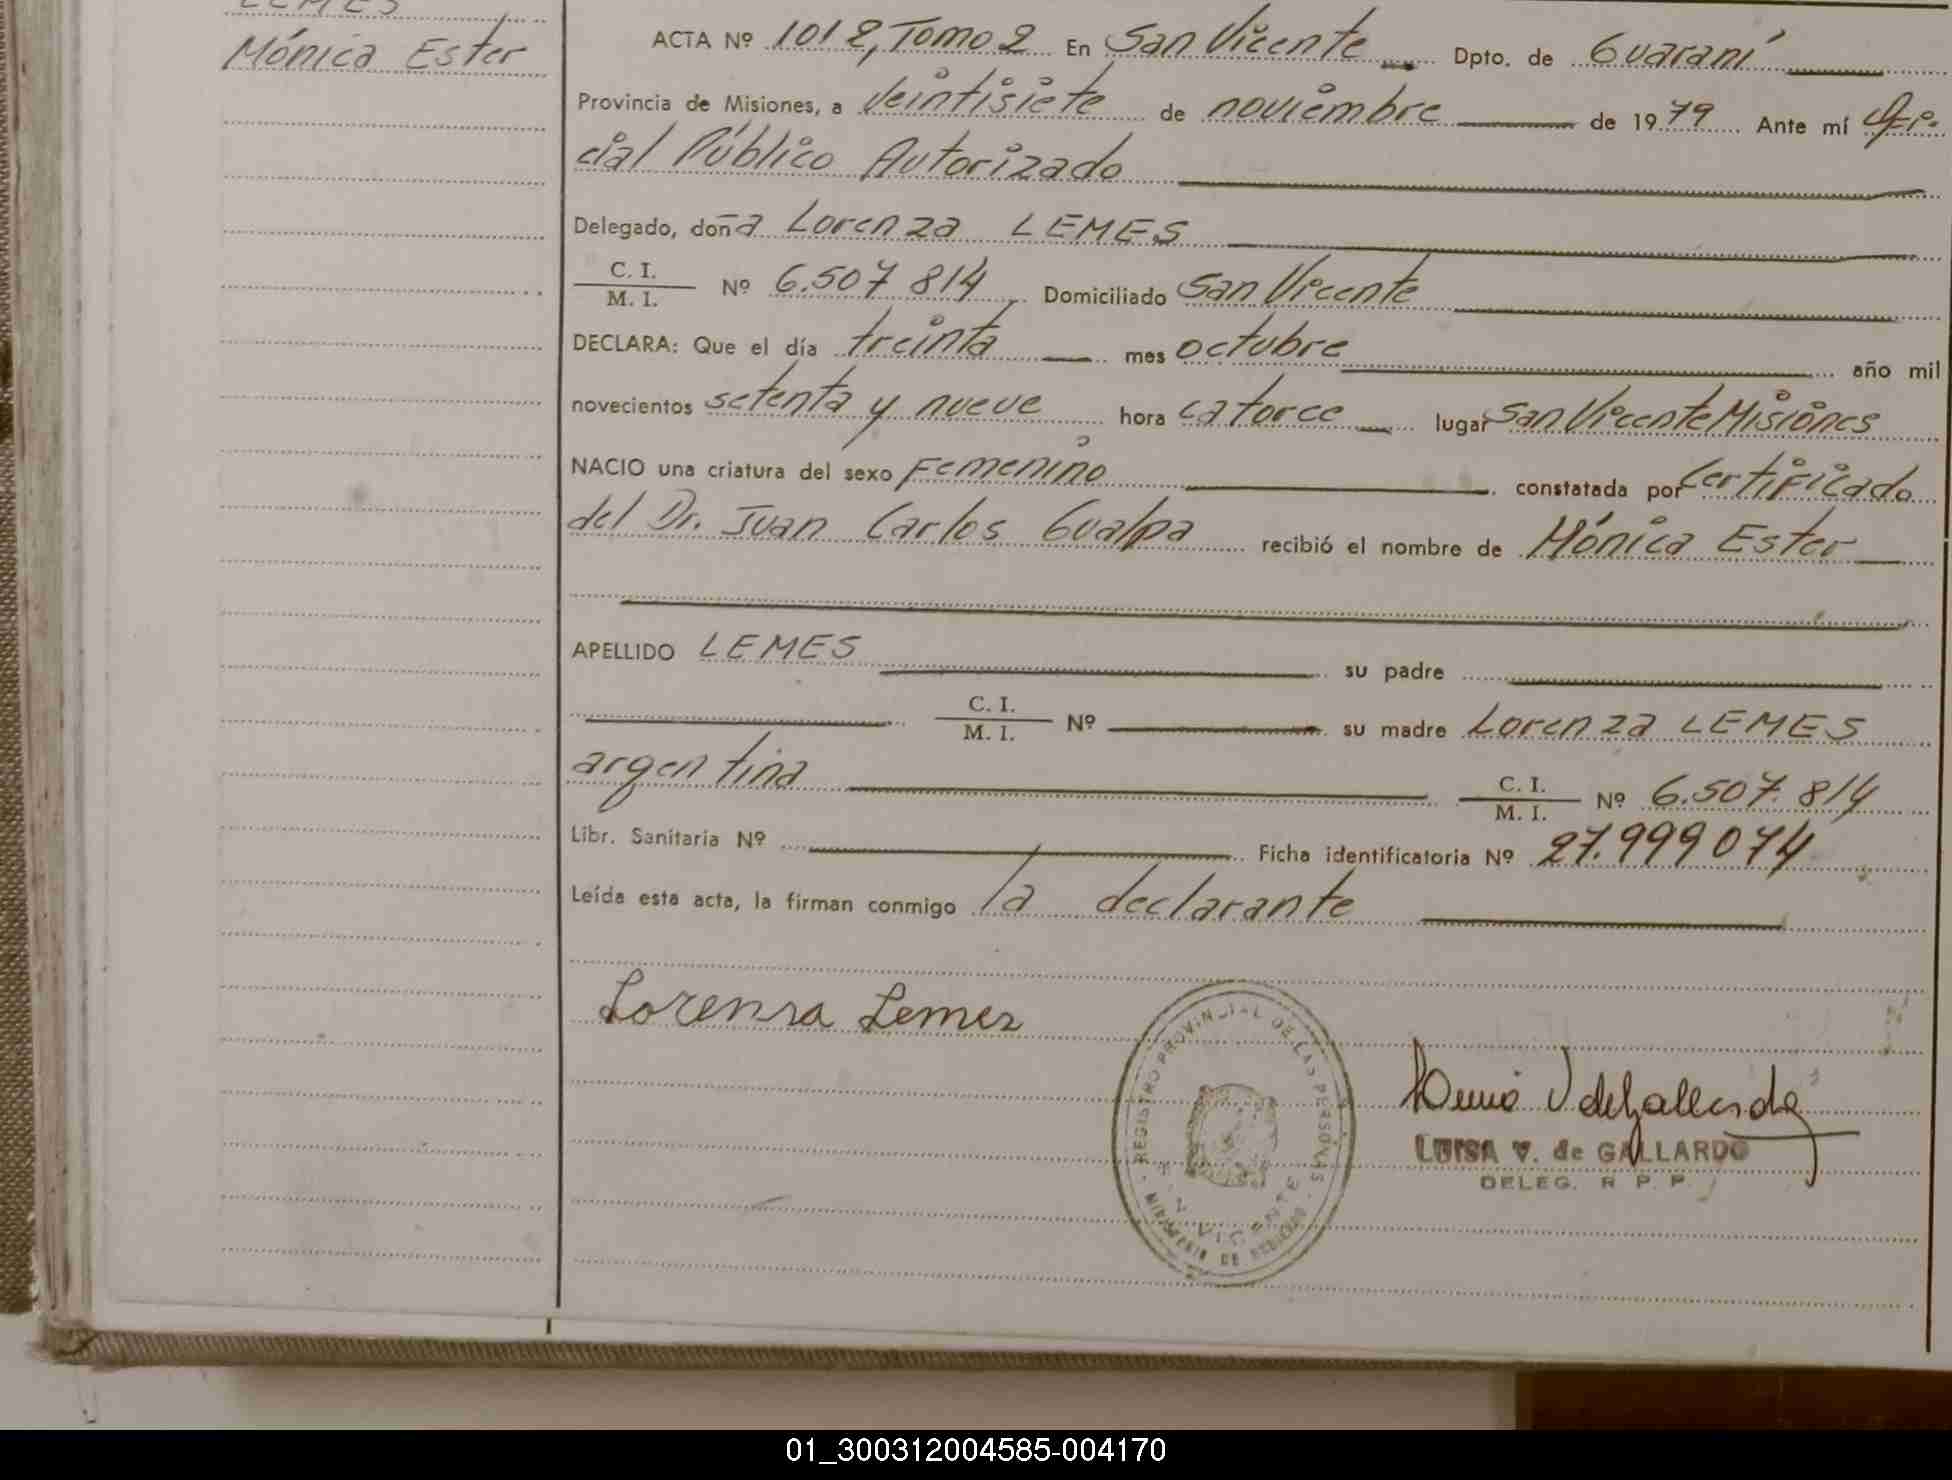 LEMES
Mónica Ester
ACTA Nº 1012, Tomo 2 En San Vicente Dpto. de Guaraní
Provincia de Misiones, a veintisiete de noviembre de 1979 Ante mí Ofi-
cial Público Autorizado
Delegado, doña Lorenza LEMES
C. I.
M. I. Nº 6.507 814 Domiciliado San Vicente
DECLARA: Que el día treinta mes octubre año mil
novecientos setenta y nueve hora catorce lugar San Vicente Misiones
NACIO una criatura del sexo Femenino constatada por Certificado
del Dr. Juan Carlos Gualpa recibió el nombre de Mónica Ester
APELLIDO LEMES su padre
C. I.
M. I. Nº su madre Lorenza LEMES
argentina C. I.
M. I. Nº 6.507.814
Libr. Sanitaria Nº Ficha identificatoria Nº 27.999074
Leída esta acta, la firman conmigo la declarante
Lorensa Lemes
REGISTRO PROVINCIAL DE LAS PERSONAS
VICENTE
MINISTERIO DE GOBIERNO
LUISA V. de GALLARDO
DELEG. R. P. P.
01_300312004585-004170